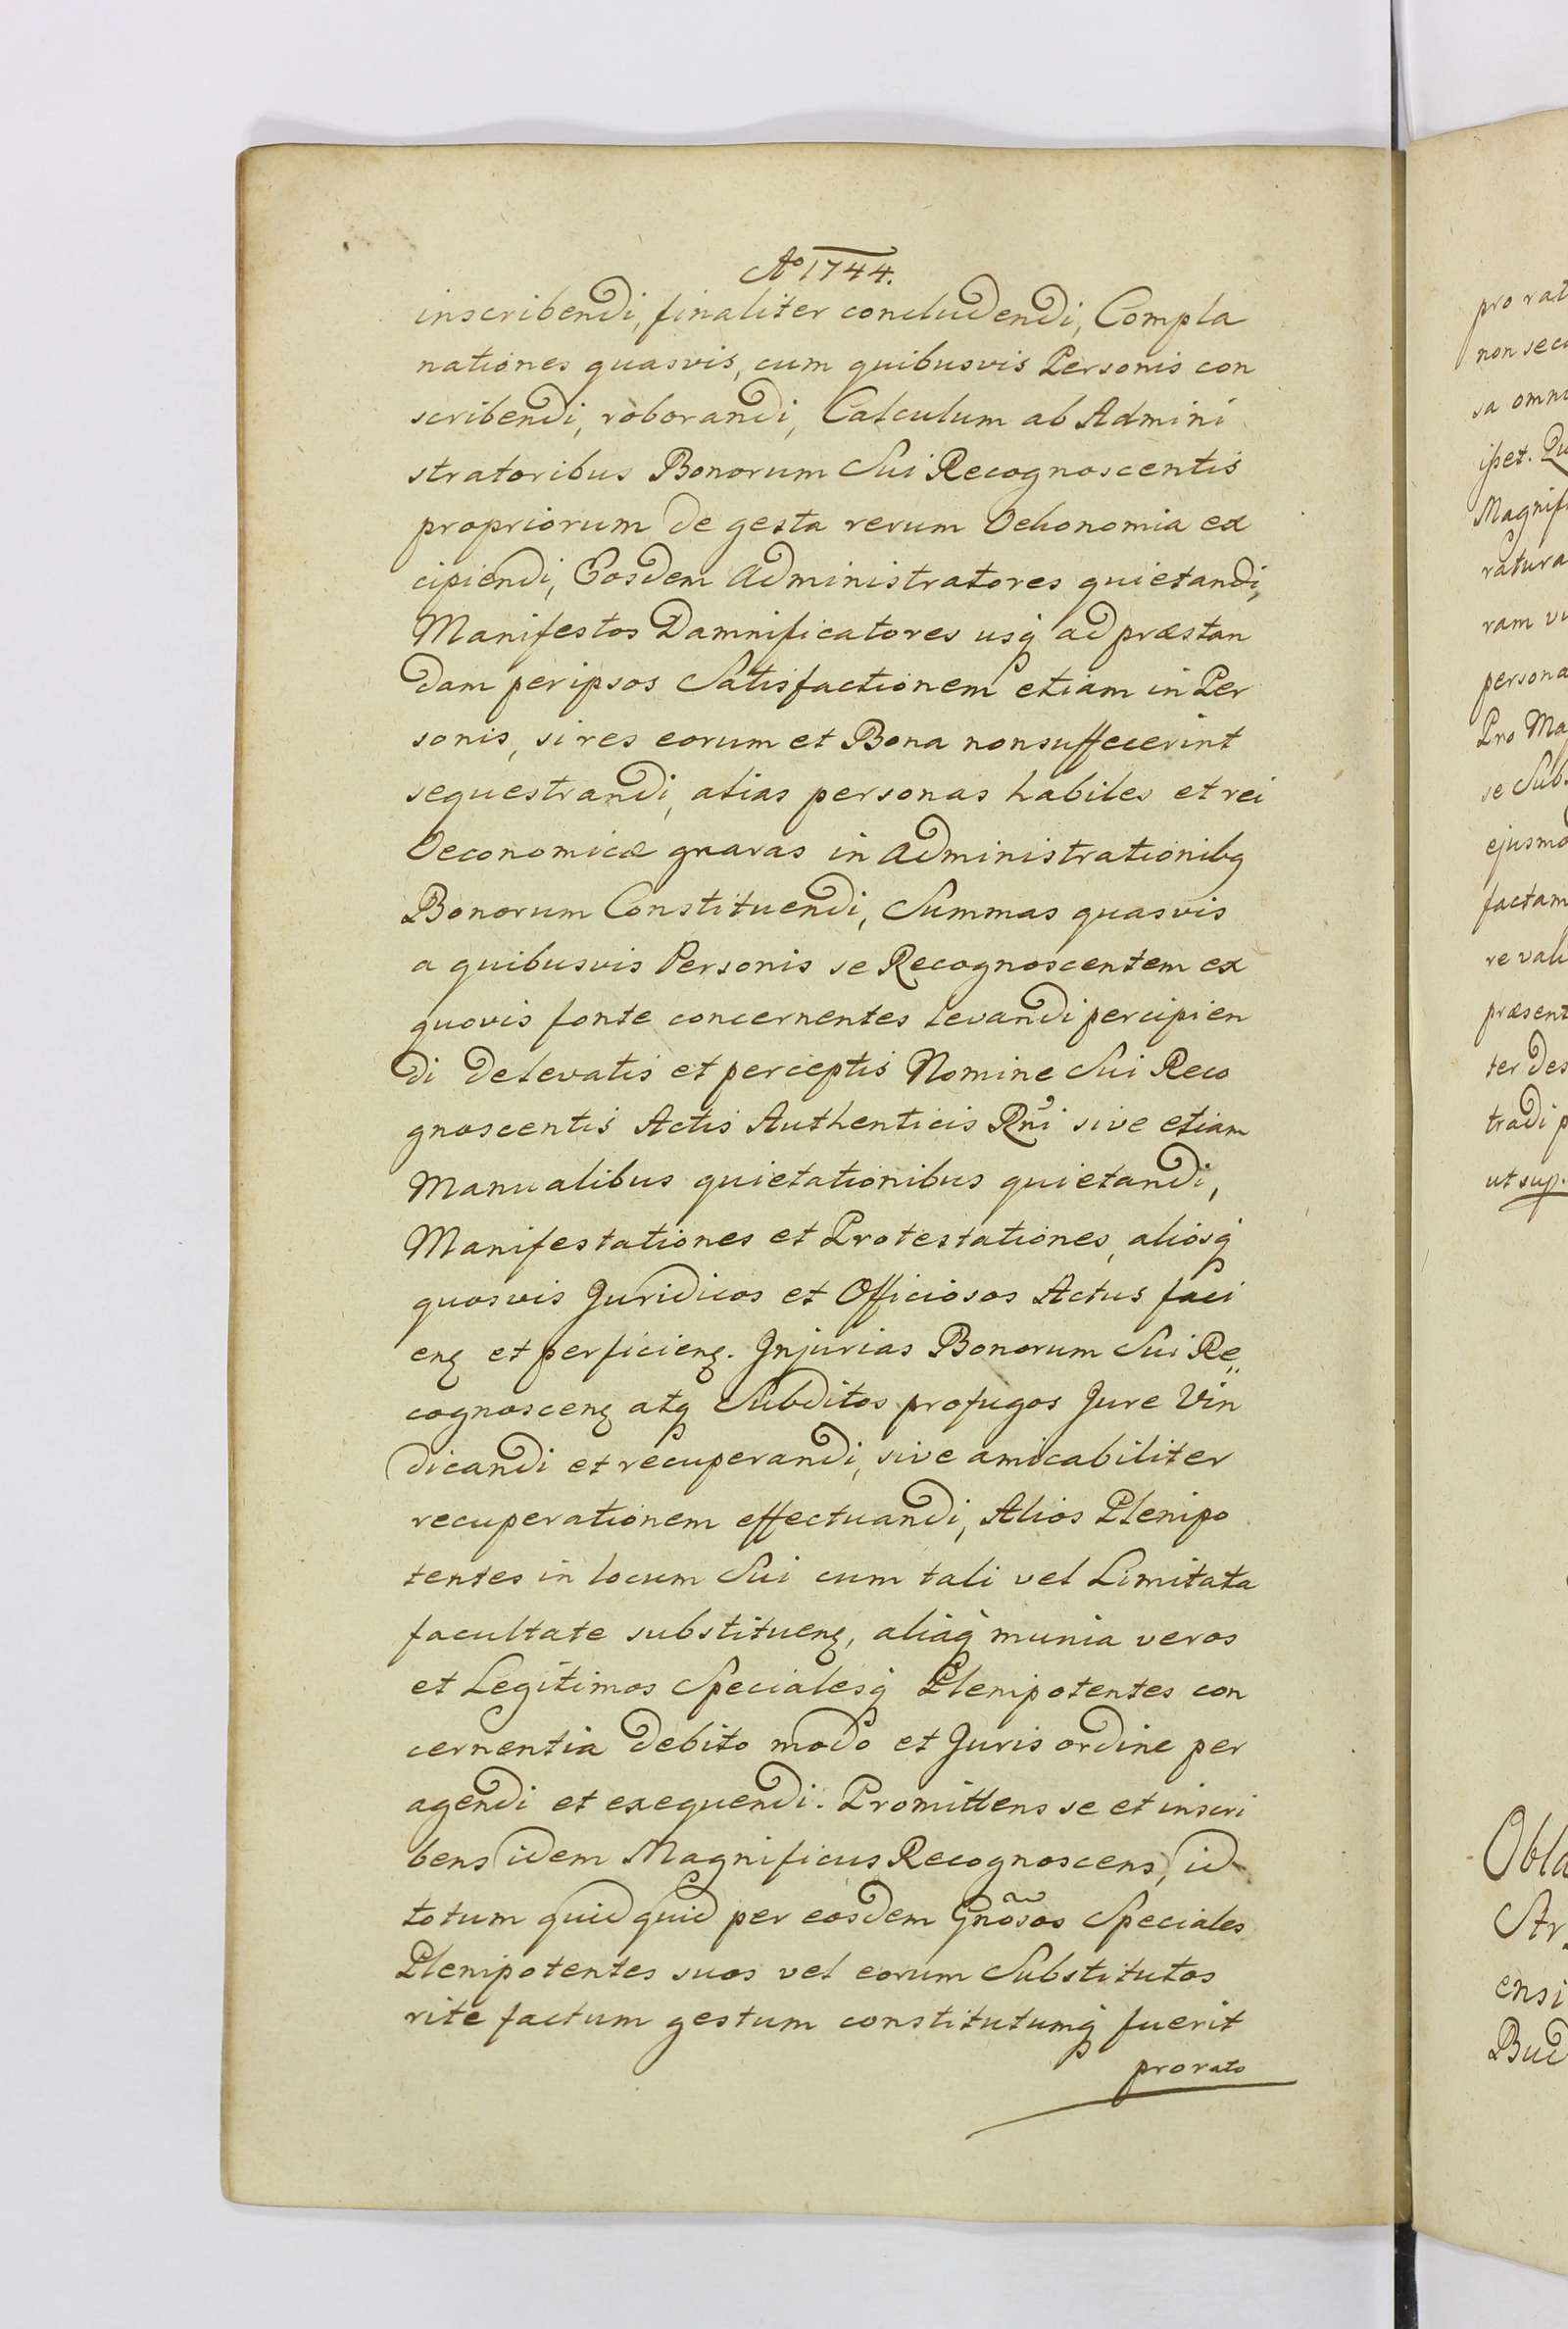 Aº 1744.
inscribendi, finaliter concludendi, Compla
nationes quasvis, cum quibusvis Personis con
scribendi, roborandi, Calculum ab Admini
stratoribus Bonorum Sui Recognoscentis
propriorum de gesta rerum Oekonomia ex
cipiendi, Eosdem Administratores quietandi,
Manifestos Damnificatores usq ad præstan
dam per ipsos Satisfactionem etiam in Per
sonis, si res eorum et Bona non suffecerint
sequestrandi, alias personas habiles et rei
Oeconomicæ gnaras in Administrationibq
Bonorum Constituendi, Summas quasvis
a quibusvis Personis se Recognoscentem ex
quovis fonte concernentes levandi percipien
di de levatis et perceptis Nomine Sui Reco
gnoscentis Actis Authenticis Rñi sive etiam
Manualibus quietationibus quietandi,
Manifestationes et Protestationes, aliosq
quosvis Juridicos et Officiosos Actus faci
enꝫ et perficienꝫ. Injurias Bonorum Sui Re„
cognoscenꝫ atq Subditos profugos Jure Vin
dicandi et recuperandi, sive amicabiliter
recuperationem effectuandi, Alios Plenipo
tentes in locum Sui cum tali vel Limitata
facultate substituenꝫ, aliaq munia veros
et Legitimos Specialesq Plenipotentes con
cernentia debito modo et Juris ordine per
agendi et exequendi. Promittens se et inscri
bens idem Magnificus Recognoscens, id
totum quidquid per eosdem Gnõsos Speciales
Plenipotentes suos vel eorum Substitutos
rite factum gestum constitutumq fuerit
pro rato
pro rat
non sec
sa omn
ißet.
Magnif
ratura
ram
persona
Pro Ma
se Sub
ejusmo
factam
re vali
præsent
ter des
tradi p
ut sup.
Obla
Str
ensi
Bud